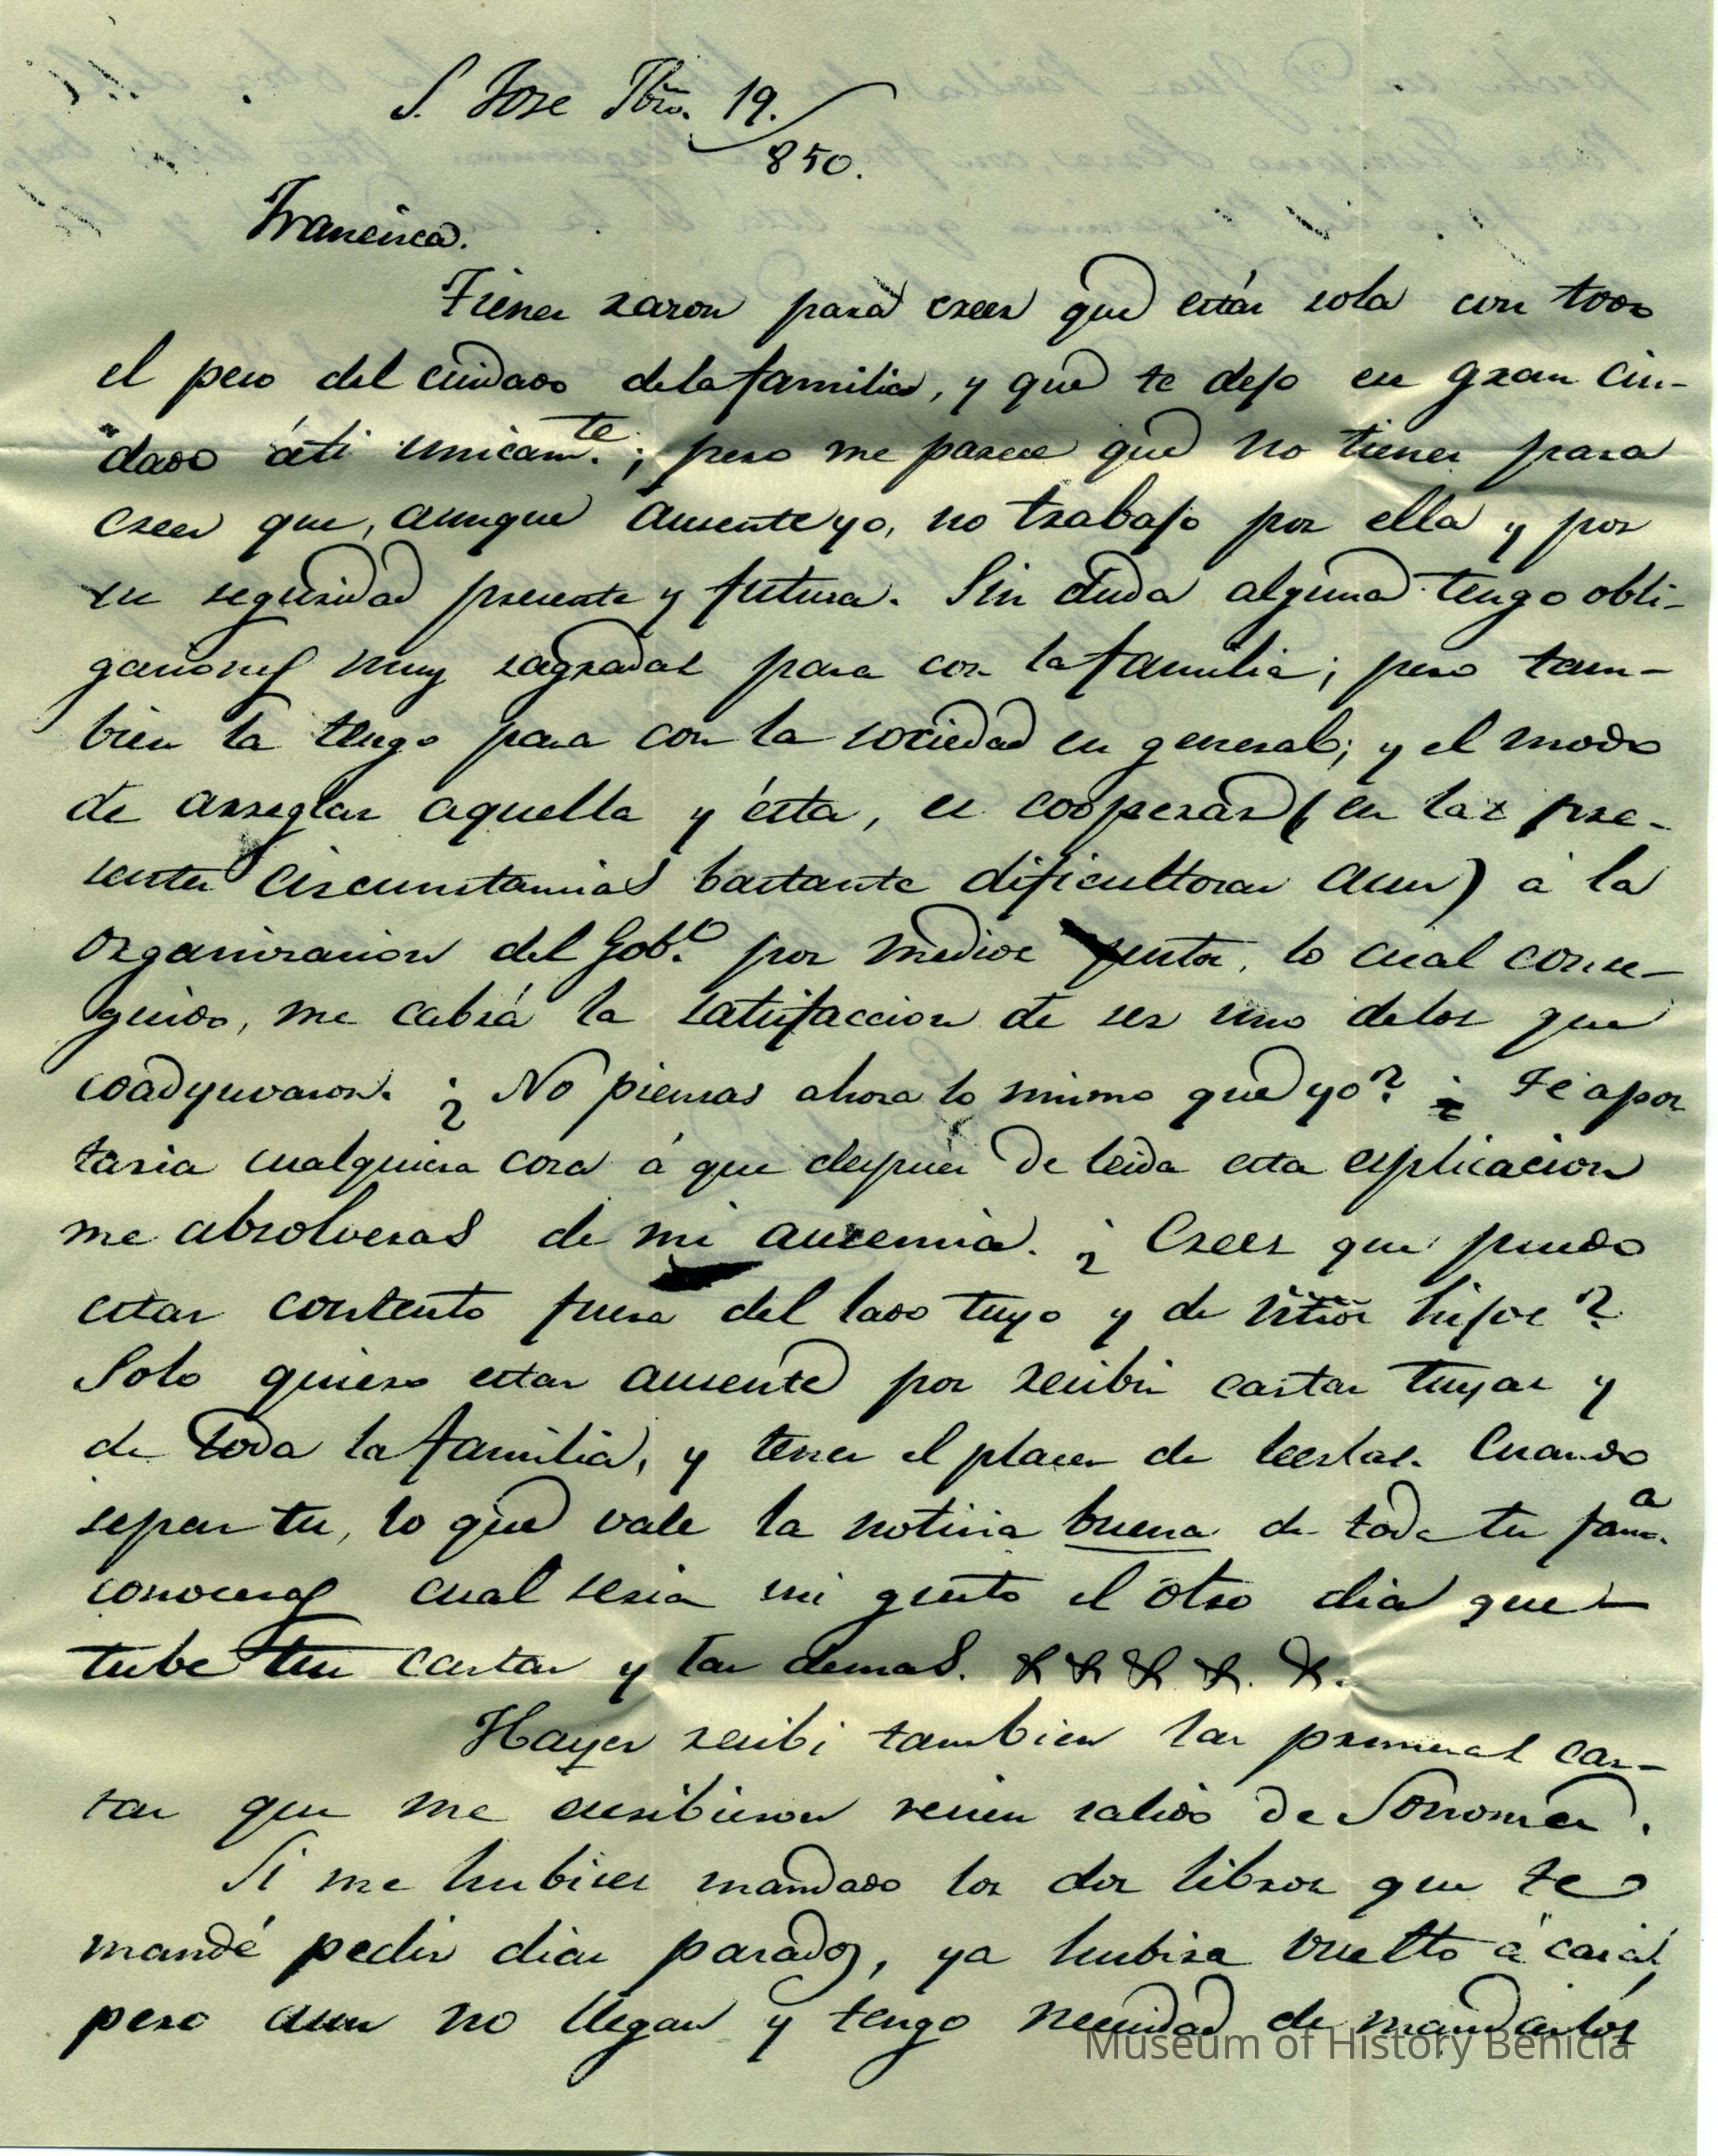 S. Jose Fbro. 19.
850.
Francisca.
Tienes razon para creer que estás sola con todo
el peso del cuidado dela familia, y que te dejo en gran cui-
dado áti unicamte.; pero me parece que no tienes para
creer que, aunque ausente yo, no trabajo por ella y por
su seguridad presente y futura. Sin duda alguna tengo obli-
gaciones muy sagradas para con la familia; pero tam-
bien la tengo para con la sociedad en general; y el modo
de arreglar aquella y ésta, es cooperar (en las pre-
sentes circunstancias bastante dificultosas aun) á la
organisacion del Gobo. por medios justos, lo cual conse-
guido, me cabrá la satisfaccion de ser uno delos que
coadyuvaron. ¿No piensas ahora lo mismo que yo? ¿Te apos
taria cualquiera cosa á que despues de leida esta esplicacion
me absolveras de mi ausencia. ¿Crees que puedo
estar contento fuera del lado tuyo y de ntros hijos?
Solo quiero estar ausente por recibir cartas tuyas y
de toda la familia, y tener el placer de leerlas. Cuando
sepas tu, lo que vale la noticia buena de toda tu fama.
conoceras cual seria mi gusto el otro dia que
tube tus cartas y las demas. & & & &. &.
Hayer recibi tambien las primeras car-
tas que me escribieron recien salido de Sonoma.
Si me hubieses mandado los dos libros que te
mandé pedir dias pasados, ya hubiera vuelto á casa,
pero aun no llegan y tengo necesidad de mandarlos
Museum of History Benicia